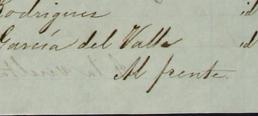 Rodrigues id
García del Valle id
Al frente